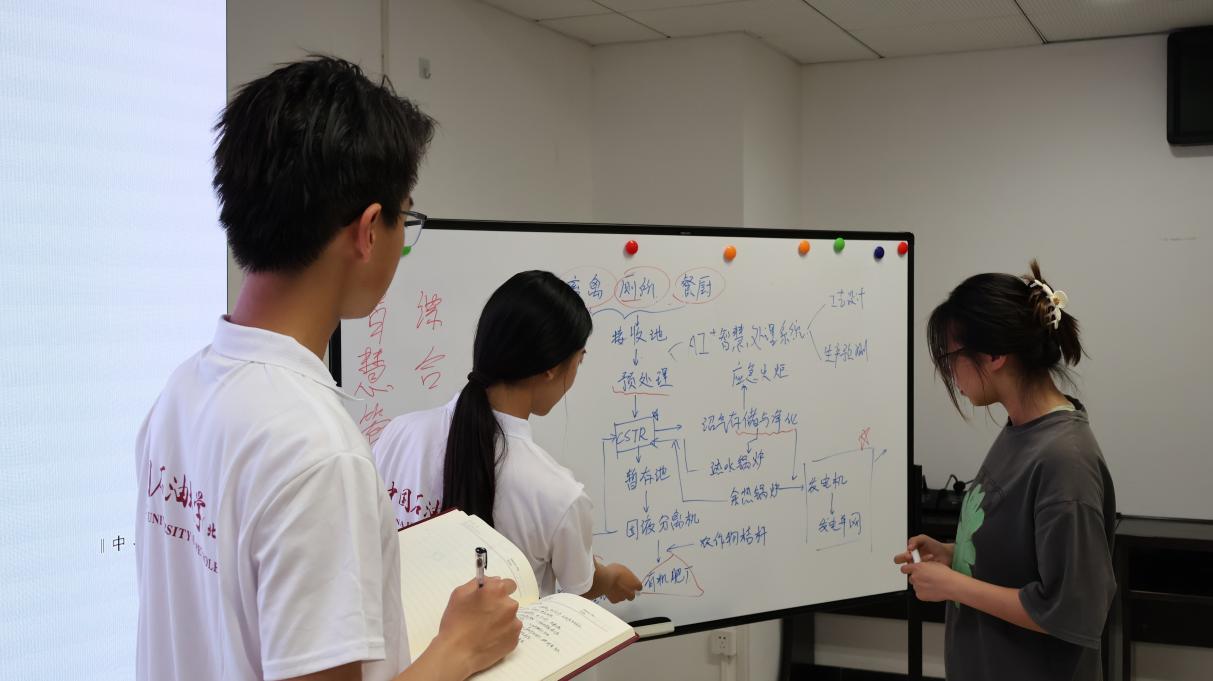 综合
智慧管
畜禽
厕所
餐厨
接收池
AI+智慧处理系统
工艺设计
生产预测
预处理
应急火炬
CSTR
沼气存储与净化
热水锅炉
暂存池
余热锅炉
发电机
固液分离机
农作物秸秆
发电车网
有机肥厂
中国石油
石油大学
北
UNIVERSITY
中